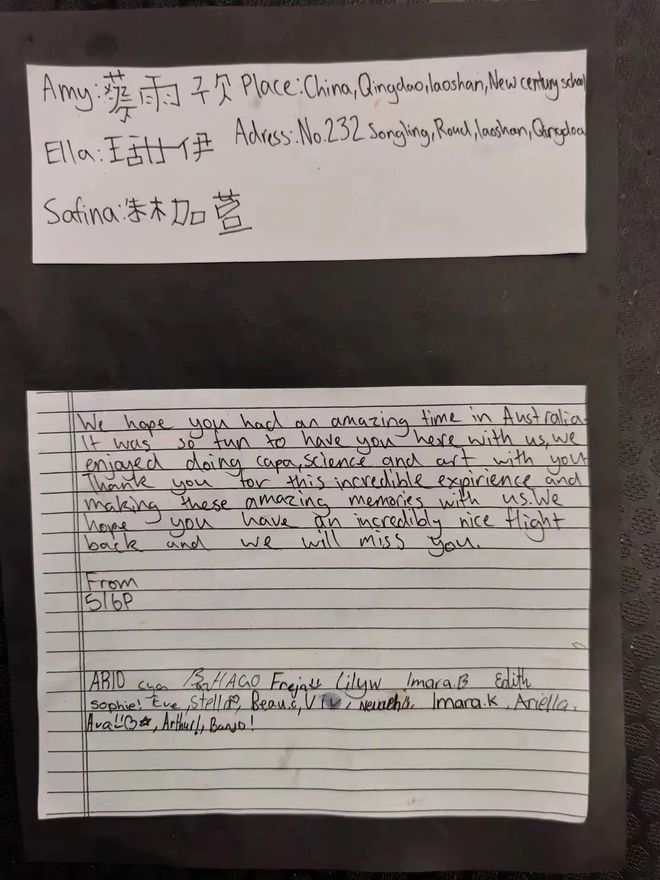 Amy:蔡雨 Place:China,Qingdao,laoshan,New century school
Ella: 甜伊 Adress:No.232 Songling,Roud,laoshan,Qingdao
Safina: 加萱
We hope you had an amazing time in Australia.
It was so fun to have you here with us,we
enjoyed doing capa,science and art with you
Thank you for this incredible expirience and
making these amazing memories with us.We
hope you have an incredibly nice flight
back and we will miss you.
From
5/6P
Freja Lilyw Imara.B Edith
Sophie! Eve, Stella, Beau.c, Viv, Imara.K, Ariella,
Ava, Arthur!, Banjo!